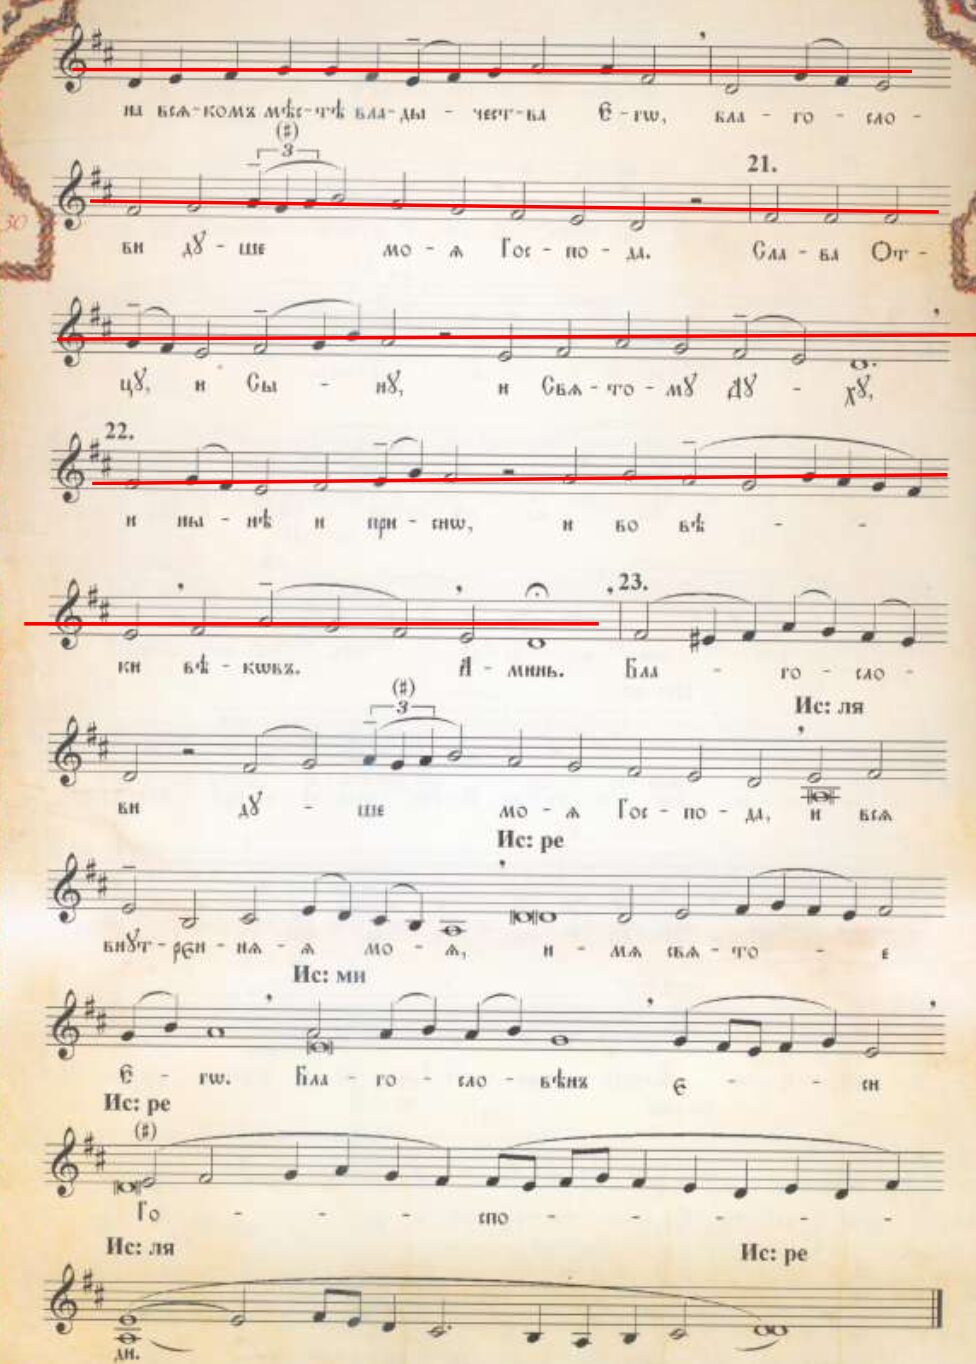 на всѧ-комъ мѣс-тѣ вла-ды - чест-ва Є-гѡ, бла - го - сло -
(♯)
3
21.
30
ви дꙋ - ше мо - ѧ Гос - по - да. Сла - ва От -
цꙋ, и Сы - нꙋ, и Свѧ - то - мꙋ Дꙋ - хꙋ,
22.
и ны - нѣ и при - снѡ, и во вѣ - -
23.
ки вѣ - кѡвъ. А - минь. Бла - го - сло -
Ис: ля
(♯)
3
ви дꙋ - ше мо - ѧ Гос - по - да, и всѧ
Ис: ре
внꙋт - рен - нѧ - ѧ мо - ѧ, и - мѧ свѧ - то - е
Ис: ми
Є - гѡ. Бла - го - сло - вѣнъ є - - си
Ис: ре
(♯)
Го - - - спо - - - - -
Ис: ля Ис: ре
ди.